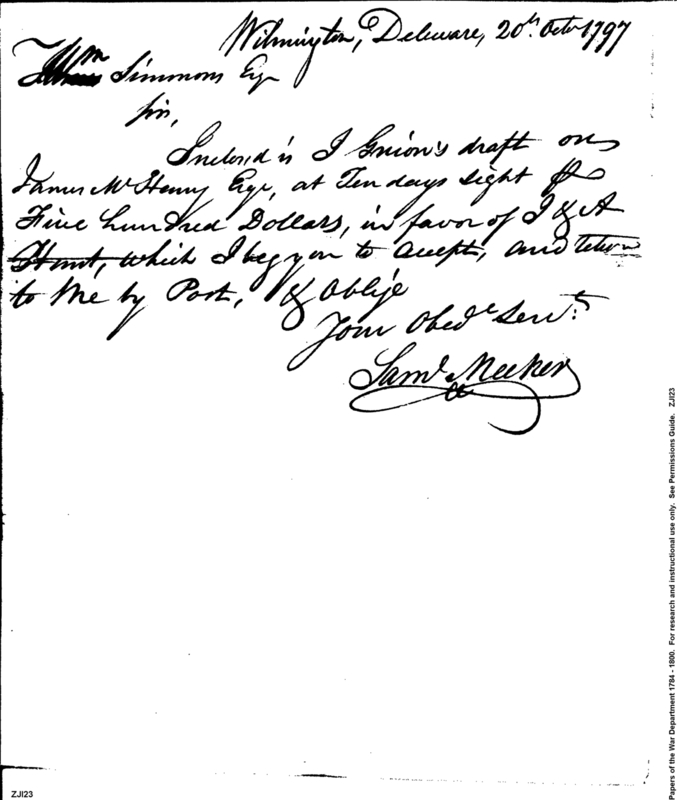 Wilmington, Deleware, 20th Octr 1797
Wm Simmons Esqr
Sir,
Inclos,d is I Guion's draft on
James McHenry Esqr, at Ten days sight for
Five hundred Dollars, in favor of I & A
Hunt, which I beg you to accept, and return
to Me by Post, & oblige
Your Obedt Servt:
Saml Meeker
ZJI23
Papers of the War Department 1784 - 1800. For research and instructional use only. See Permissions Guide. ZJI23